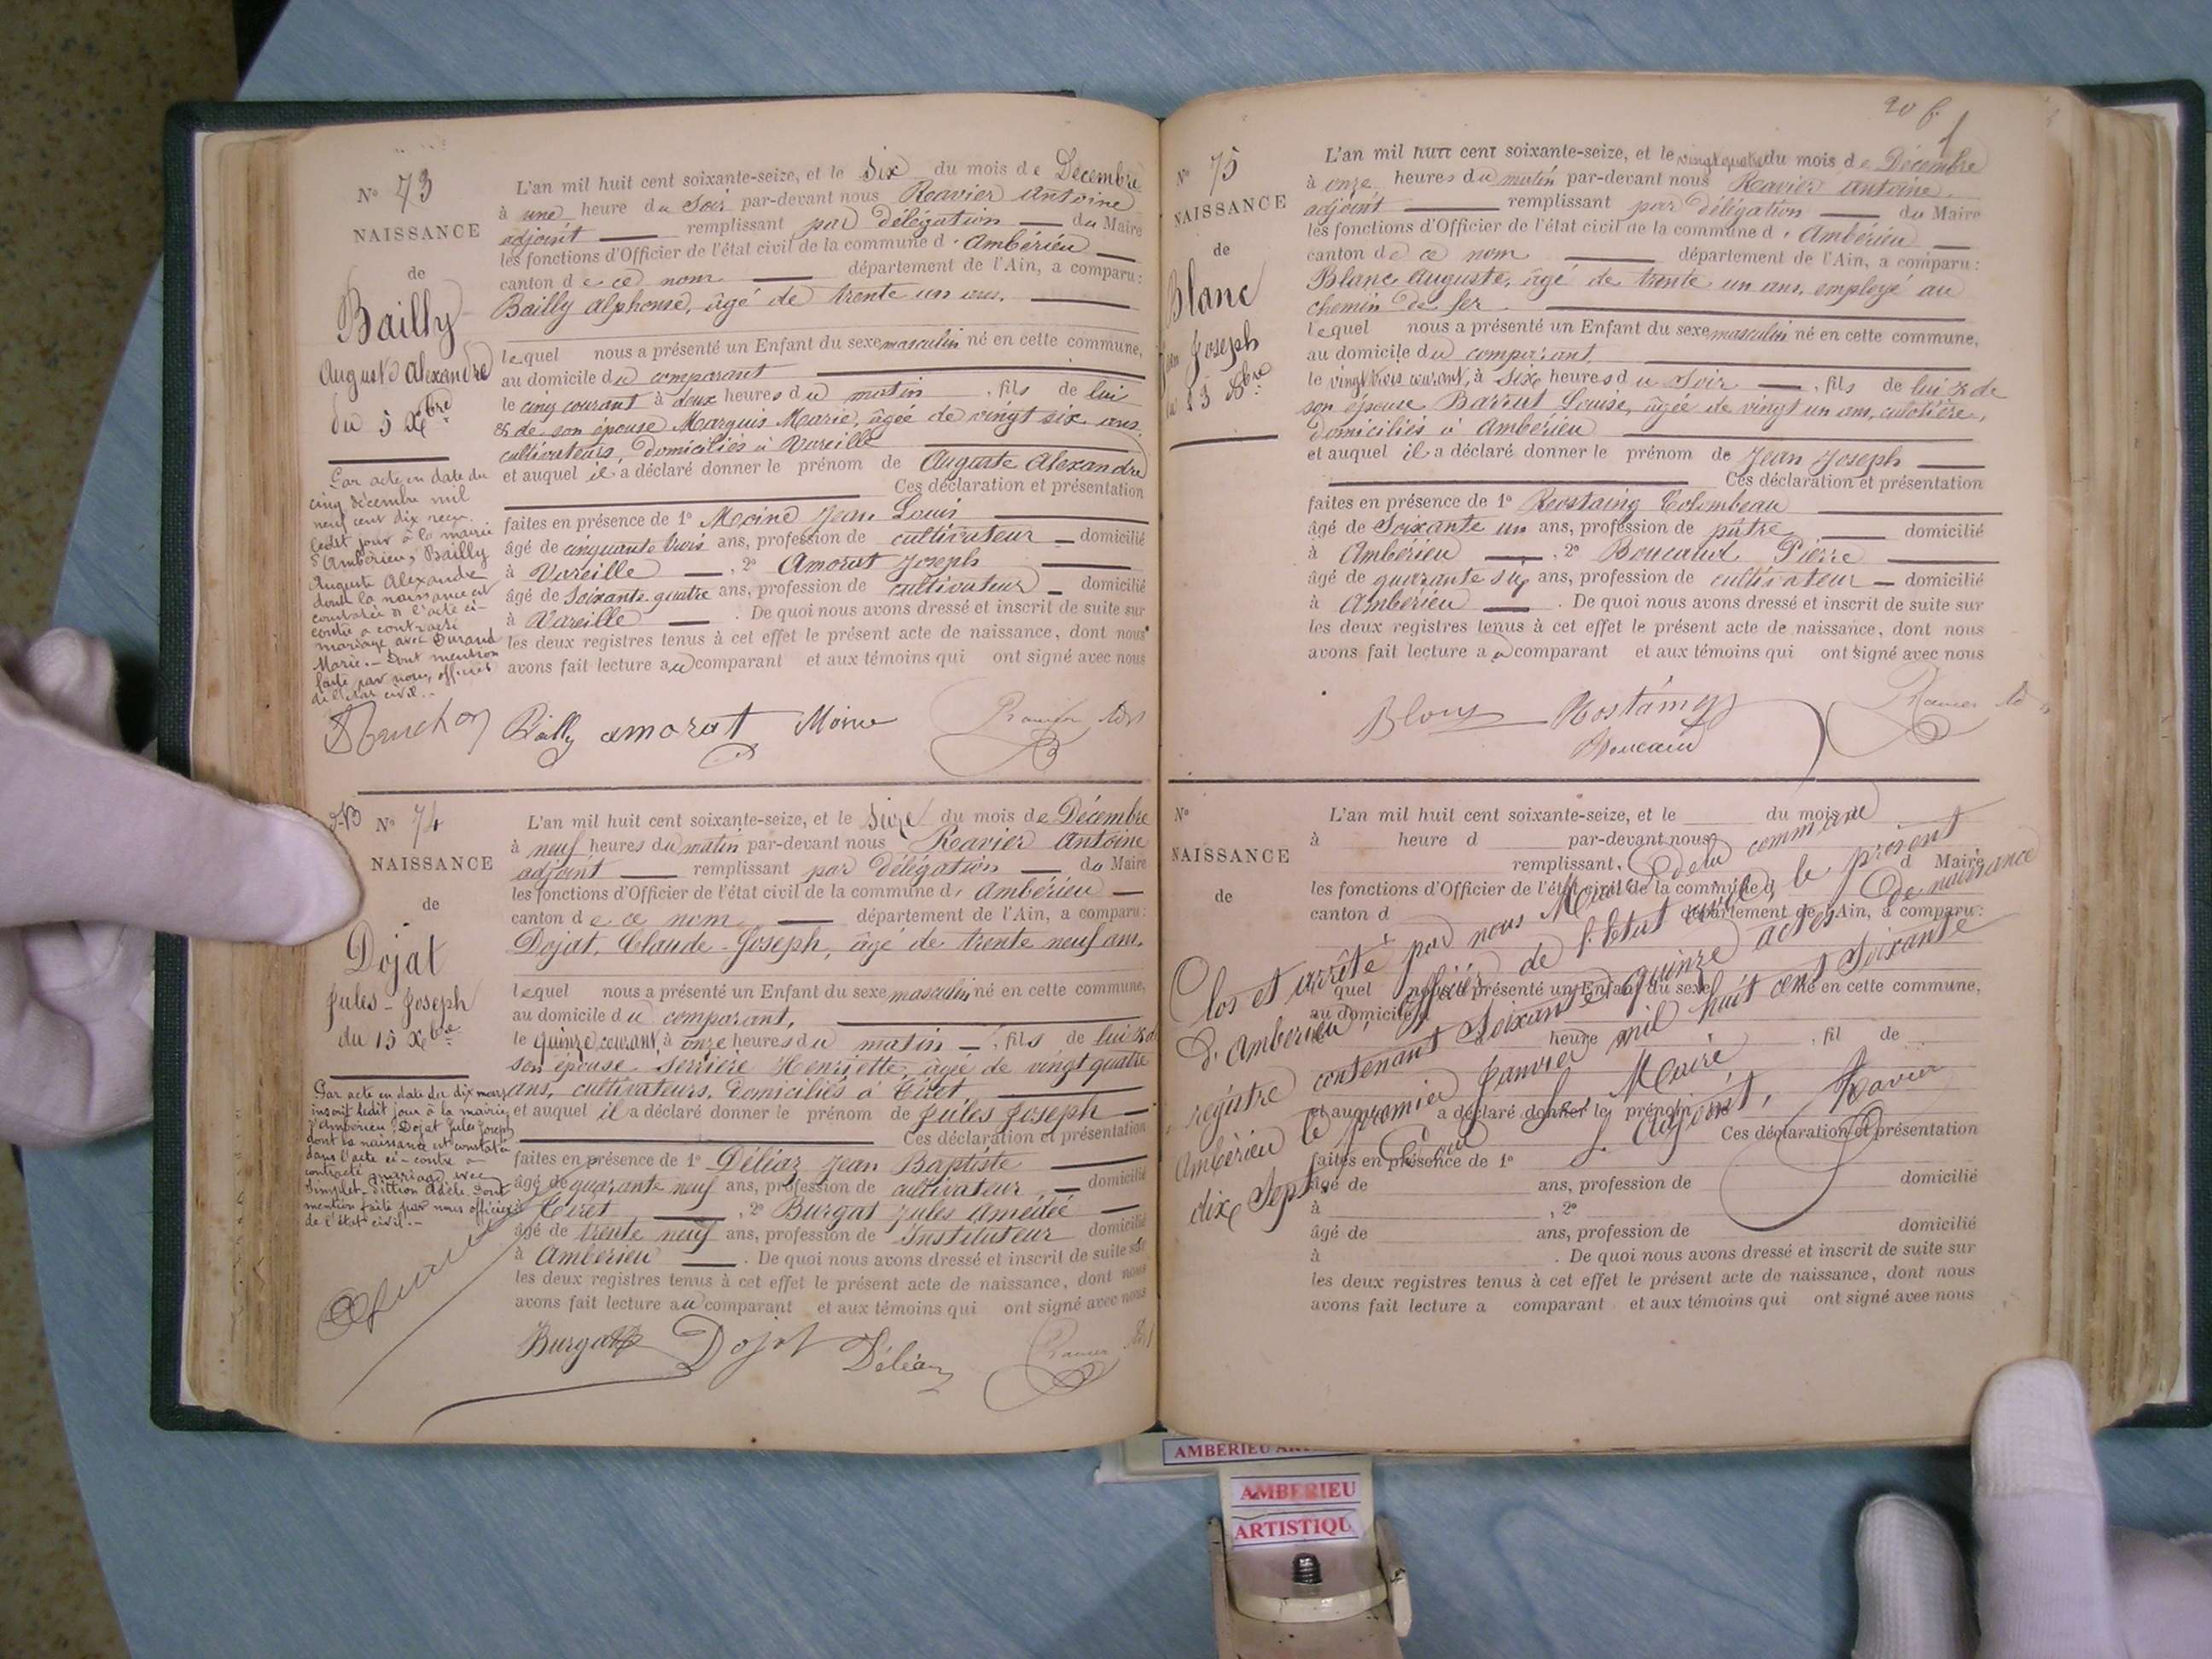 N° 73
NAISSANCE
de
Bailly
Auguste Alexandre
du 5 Xbre
Par acte en date du
cinq décembre mil
neuf cent dix reçu
ledit jour à la mairie
d'Ambérieu, Bailly
Auguste Alexandre
dont la naissance est
constatée à l'acte ci-
contre a contracté
mariage avec Durand
Marie.- Dont mention
faite par nous, officier
de l'état civil.-
L'an mil huit cent soixante-seize, et le Six du mois de Décembre
à une heure du Soir par-devant nous Ravier Antoine
adjoint remplissant par délégation du Maire
les fonctions d'Officier de l'état civil de la commune d'Ambérieu
canton de ce nom département de l'Ain, a comparu:
Bailly Alphonse, âgé de trente un ans,
lequel nous a présenté un Enfant du sexe masculin né en cette commune,
au domicile du comparant
le cinq courant à deux heures du matin, fils de lui
& de son épouse Marquis Marie, âgée de vingt six ans,
cultivateurs, domiciliés à Vareille
et auquel il a déclaré donner le prénom de Auguste Alexandre
Ces déclaration et présentation
faites en présence de 1° Moine Jean Louis
âgé de cinquante trois ans, profession de cultivateur domicilié
à Vareille, 2° Amorat Joseph
âgé de Soixante quatre ans, profession de cultivateur domicilié
à Vareille. De quoi nous avons dressé et inscrit de suite sur
les deux registres tenus à cet effet le présent acte de naissance, dont nous
avons fait lecture au comparant et aux témoins qui ont signé avec nous
Bailly amorat Moine Ravier Adt
N° 74
NAISSANCE
de
Dojat
Jules-Joseph
du 15 Xbre
Par acte en date du dix mars
inscrit ledit jour à la mairie
d'Ambérieu, Dojat Jules Joseph
dont la naissance est constatée
dans l'acte ci-contre a
contracté mariage avec
Adèle. Dont
mention faite par nous officier
de l'état civil.-
L'an mil huit cent soixante-seize, et le Seize du mois de Décembre
à neuf heures du matin par-devant nous Ravier Antoine
adjoint remplissant par délégation du Maire
les fonctions d'Officier de l'état civil de la commune d'Ambérieu
canton de ce nom département de l'Ain, a comparu:
Dojat, Claude-Joseph, âgé de trente neuf ans,
lequel nous a présenté un Enfant du sexe masculin né en cette commune,
au domicile du comparant,
le quinze courant, à onze heures du matin, fils de lui & de
son épouse Serrière Henriette, âgée de vingt quatre
ans, cultivateurs, domiciliés à Tiret,
et auquel il a déclaré donner le prénom de Jules Joseph
Ces déclaration et présentation
faites en présence de 1° Déliaz Jean Baptiste
âgé de quarante neuf ans, profession de cultivateur, domicilié
à Tiret, 2° Burgat Jules Amédée
âgé de trente neuf ans, profession de Instituteur domicilié
à Ambérieu. De quoi nous avons dressé et inscrit de suite sur
les deux registres tenus à cet effet le présent acte de naissance, dont nous
avons fait lecture au comparant et aux témoins qui ont signé avec nous
Burgat Dojat Déliaz Ravier Adt
N° 75
NAISSANCE
de
Blanc
Jean Joseph
L'an mil huit cent soixante-seize, et le vingt quatre du mois de Décembre
à onze heures du matin par-devant nous Ravier Antoine,
adjoint remplissant par délégation du Maire
les fonctions d'Officier de l'état civil de la commune d'Ambérieu
canton de ce nom département de l'Ain, a comparu:
Blanc Auguste, âgé de trente un ans, employé au
chemin de fer
lequel nous a présenté un Enfant du sexe masculin né en cette commune,
au domicile du comparant
le vingt trois courant, à Six heures du Soir, fils de lui & de
son épouse Barrut Louise, âgée de vingt un ans, culotière,
domiciliés à Ambérieu
et auquel il a déclaré donner le prénom de Jean Joseph
Ces déclaration et présentation
faites en présence de 1° Rostaing Colombeau
âgé de Soixante un ans, profession de pâtre, domicilié
à Ambérieu, 2° Boucaud Pierre
âgé de quarante six ans, profession de cultivateur domicilié
à Ambérieu. De quoi nous avons dressé et inscrit de suite sur
les deux registres tenus à cet effet le présent acte de naissance, dont nous
avons fait lecture au comparant et aux témoins qui ont signé avec nous
Blanc Rostaing Ravier Adt
Boucaud
N°
NAISSANCE
de
L'an mil huit cent soixante-seize, et le du mois de
à heure d par-devant nous
remplissant d Maire
les fonctions d'Officier de l'état civil de la commune d
canton d département de l'Ain, a comparu:
quel nous a présenté un Enfant du sexe né en cette commune,
au domicile d
heure , fil de
et auquel a déclaré donner le prénom de
Ces déclaration et présentation
faites en présence de 1°
âgé de ans, profession de domicilié
à , 2°
âgé de ans, profession de domicilié
à . De quoi nous avons dressé et inscrit de suite sur
les deux registres tenus à cet effet le présent acte de naissance, dont nous
avons fait lecture a comparant et aux témoins qui ont signé avec nous
Clos et arrêté par nous Maire de la commune
d'Ambérieu, officier de l'Etat civil, le présent
registre contenant Soixante quinze actes de naissance
Ambérieu le premier Janvier mil huit cent Soixante
dix Sept. Pour le Maire
L'adjoint, Ravier
AMBERIEU
AMBERIEU
ARTISTIQU